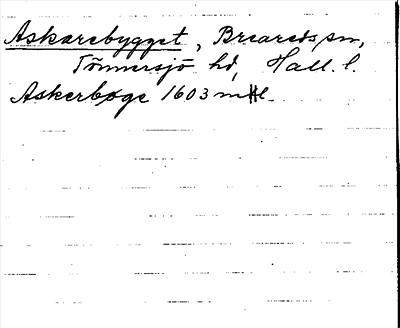 Askarebygget, Breareds sn,
Tönnersjö hd, Hall. l.
Askerbøge 1603 mtl.